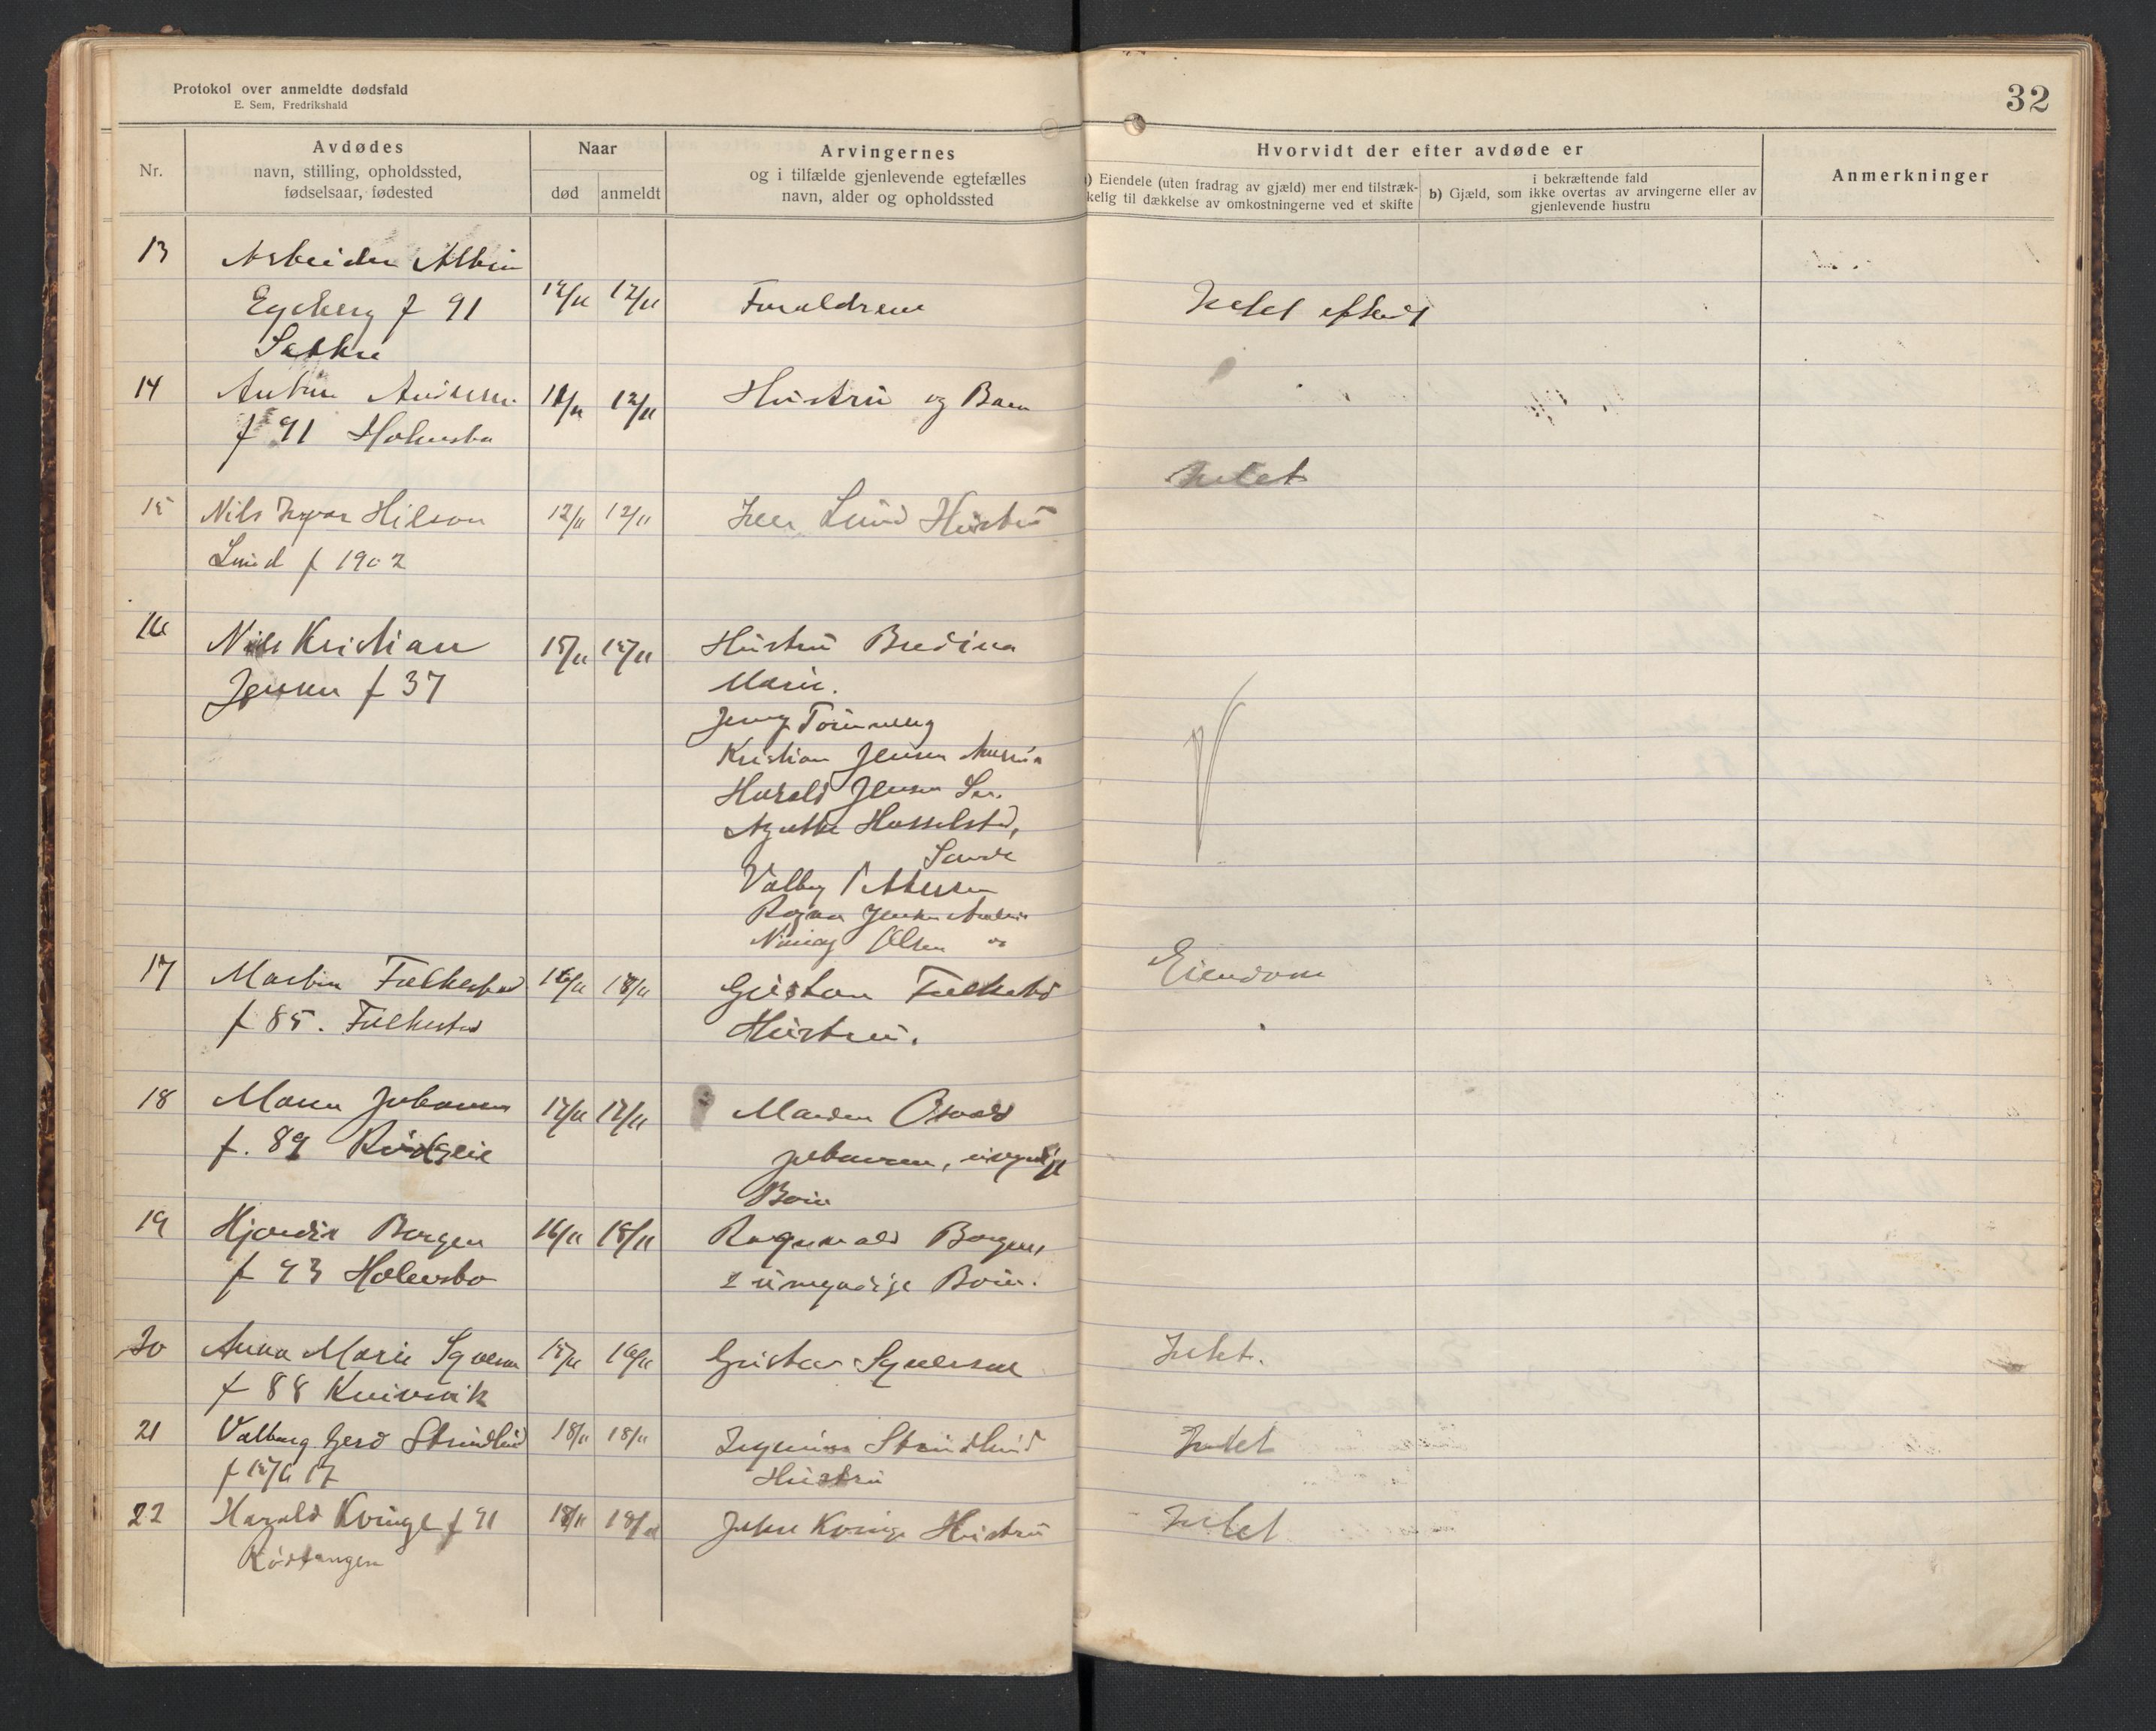 Protokol over anmeldte dødsfald
E. Sem, Fredrikshald
32
Nr.
Avdødes
navn, stilling, opholdssted,
fødselsaar, fødested
Naar
død
anmeldt
Arvingernes
og i tilfælde gjenlevende egtefælles
navn, alder og opholdssted
Hvorvidt der efter avdøde er
) Eiendele (uten fradrag av gjæld) mer end tilstræk-
kelig til dækkelse av omkostningerne ved et skifte
i bekræftende fald
b) Gjæld, som ikke overtas av arvingerne eller av
gjenlevende hustru
Anmerkninger
13 Arbeider Albin
Egeberg f 91 12/11 12/11 Foraldrene Intet
Sætre
14 Anton Andersen 11/11 12/11 Hustru og Barn
f 91 Holmsbo
Intet
15 Nils Hilson 12/11 12/11 Lund Hustru
Lund f 1902
16 Nils Kristian 15/11 15/11 Hustru Bredina
Jensen f 37 Marie.
Jenny
Kristian Jensen
Harald Jensen
Agathe Hasselsted,
Sande
Valborg Pettersen
Ragna Jensen
Olsen
17 Martin Folkestad 16/11 18/11 Gustav Folkestad Eiendom
f 85. Folkestad Hustru.
18 Maren Johansen 17/11 17/11 Manden Osvald
f. 89 Johansen, umyndige
Barn
19 Hjørdis Borgen 16/11 18/11 Ragnvald Borgen,
f 93 Holmsbo 2 umyndige Barn.
20 Anna Marie 15/11 16/11 Gustav Intet.
f 88 Knivsvik
21 Valborg Gerd Strindlund 18/11 18/11 Strindlund Intet
f 17 Hustru
22 Harald Kvinge f 91 18/11 18/11 Kvinge Hustru Intet
Rødtangen